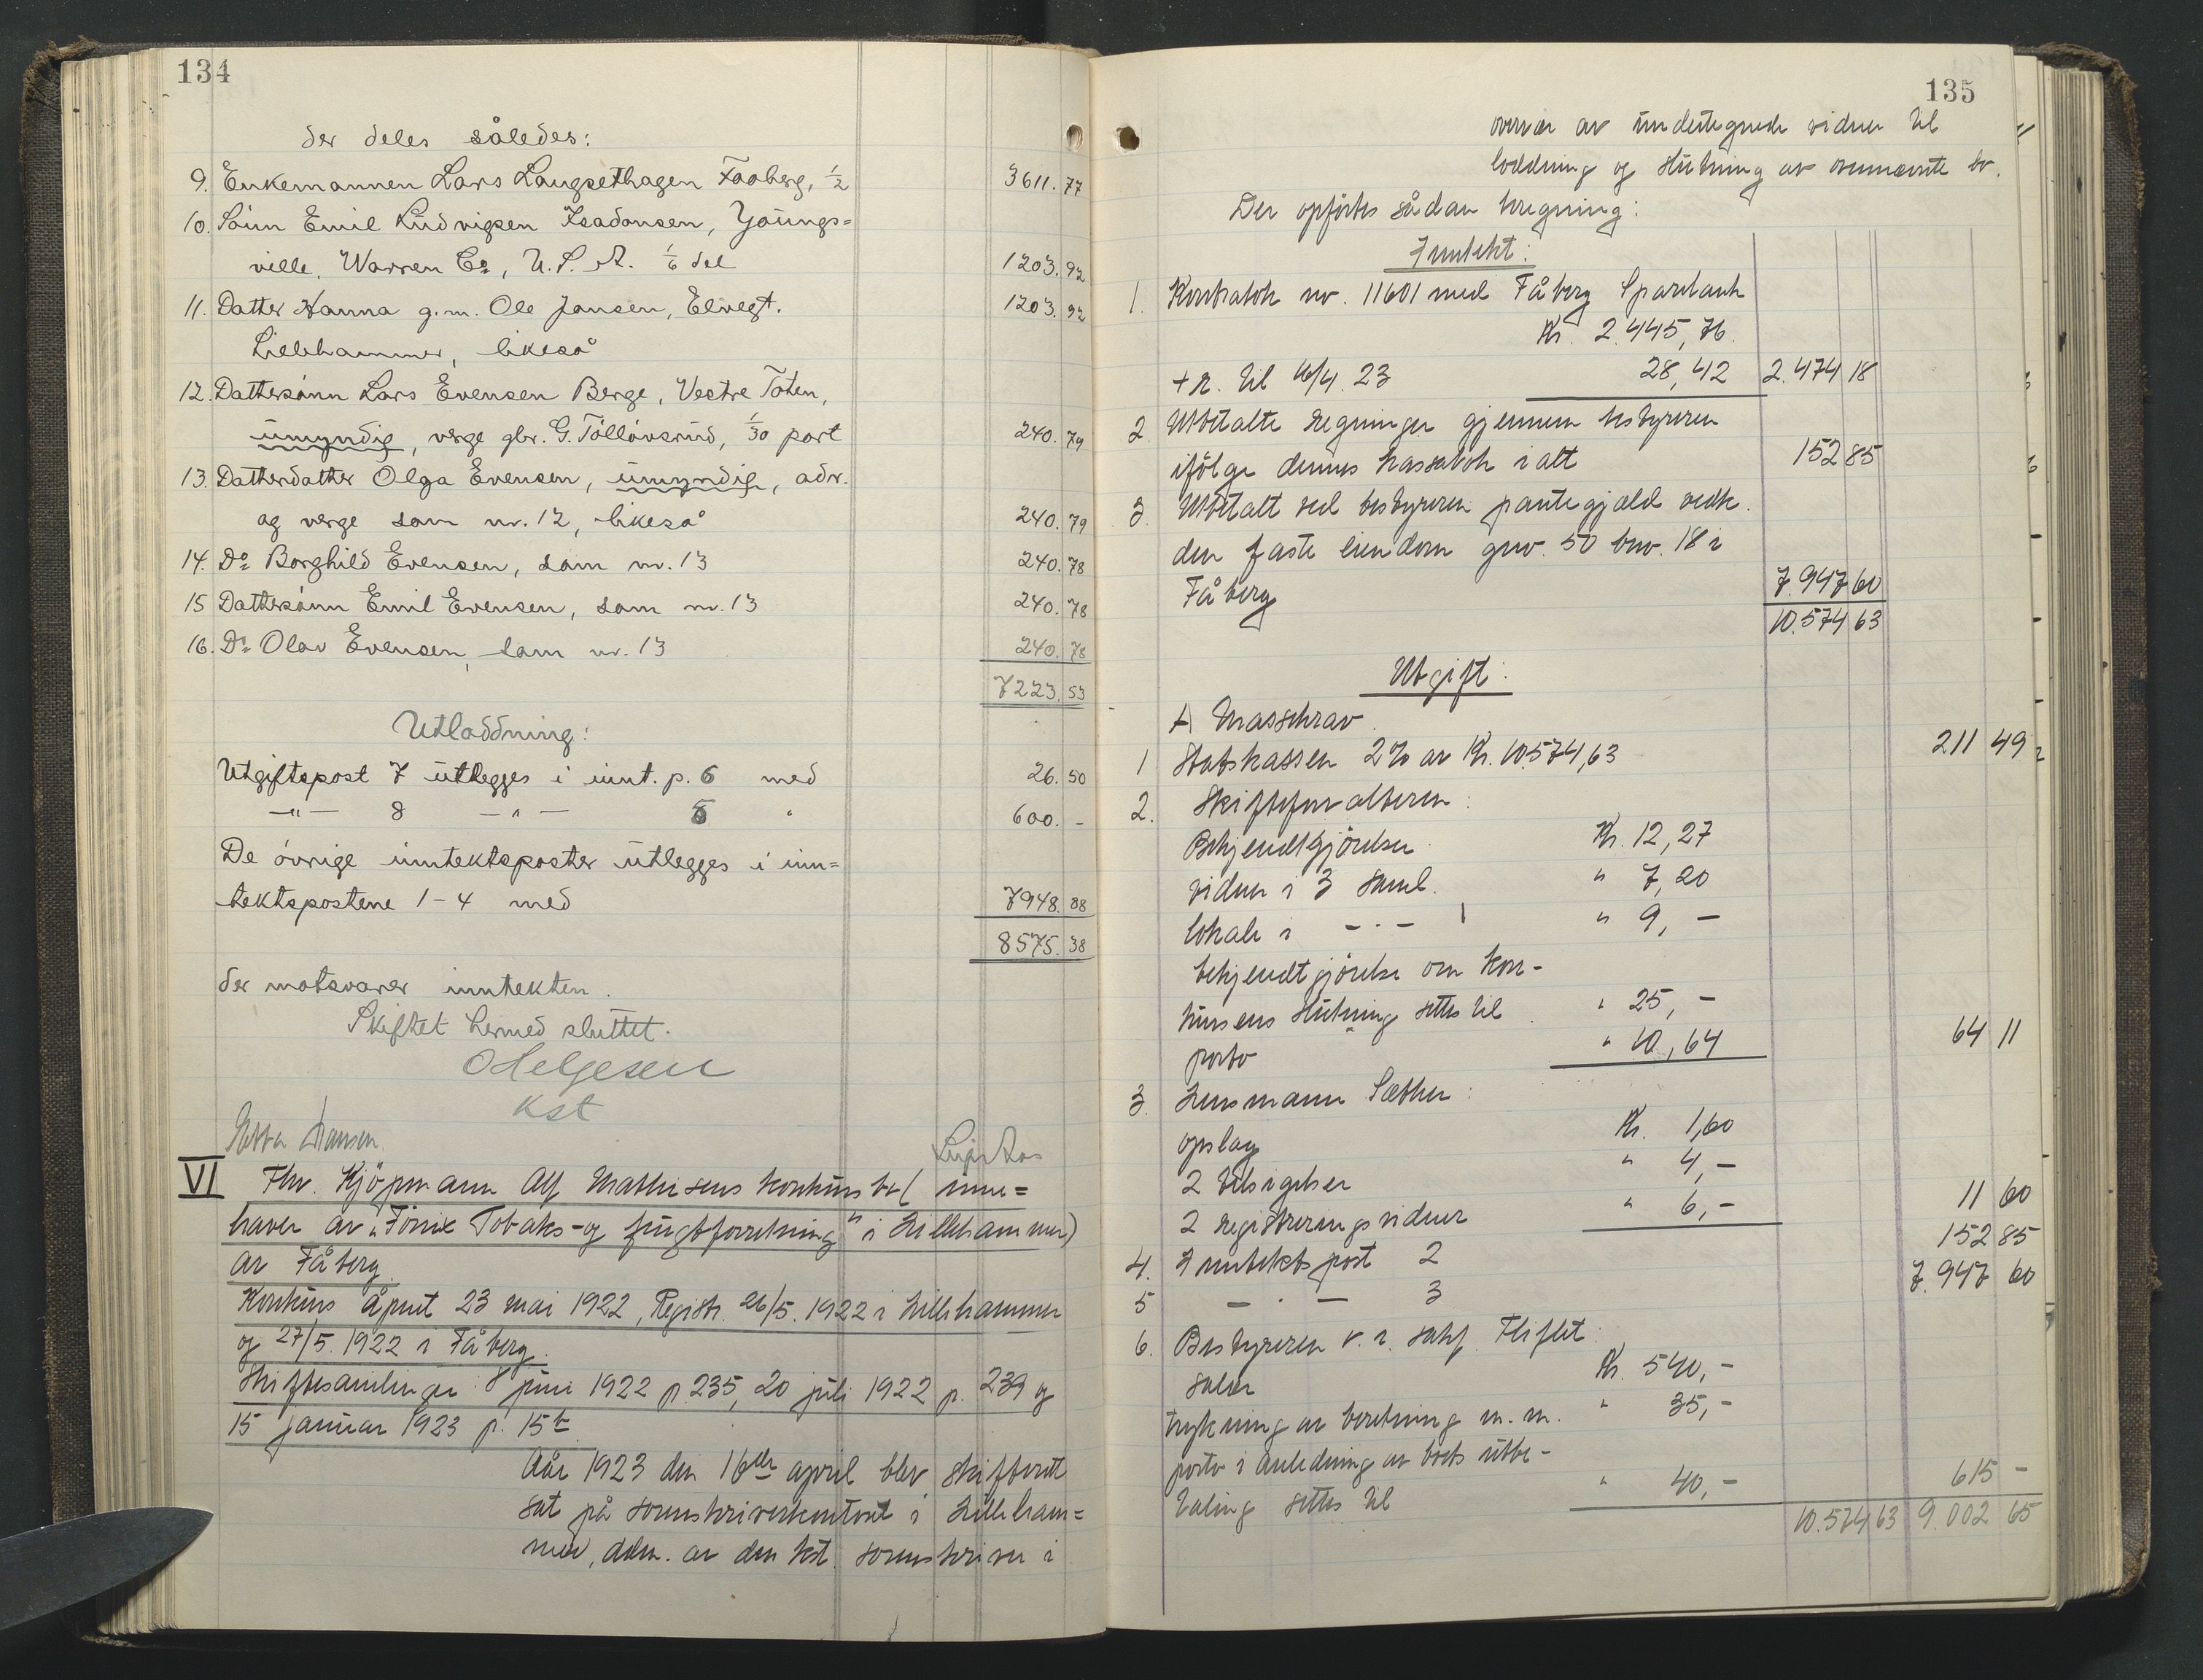 134
der deles således:
9. Enkemannen Lars Langsethagen Faaberg, 1/2 3611.77
10. Sønn Emil Ludvigsen Isadonsen, Youngs=
ville, Warren Co, U.S.A. 1/6 del 1203.92
11. Datter Hanna g.m. Ole Jansen, Elvegt.
Lillehammer, likeså 1203.92
12. Dattersønn Lars Evensen Berge, Vestre Toten,
umyndig, verge gbr. G. Tollövsrud, 1/30 part 240.79
13. Datterdatter Olga Evensen, umyndig, adr.
og verge som nr. 12, likeså 240.79
14. Do Borghild Evensen, som nr. 13 240.78
15 Dattersønn Emil Evensen, som nr. 13 240.78
16. Do Olav Evensen, som nr. 13 240.78
7223.53
Utloddning:
Utgiftspost 7 utlegges i innt. p. 6 med 26.50
—"— 8 —"— 5 " 600.-
De övrige inntektsposter utlegges i inn=
tektspostene 1-4 med 7948.88
8575.38
der motsvarer inntekten.
Skiftet hermed sluttet.
O Helgesen
Kst
VI Fhv. Kjöpmann Alf Mathisens konkursbo (inne=
haver av "Fönix Tobaks- og frugtforretning" i Lillehammer)
av Fåberg.
Konkurs åpnet 23 mai 1922, Registr. 26/5. 1922 i Lillehammer
og 27/5. 1922 i Fåberg.
Skiftesamlinger: 8 juni 1922 p. 235, 20 juli 1922 p. 239 og
15 januar 1923 p. 15b.
Aår 1923 den 16de april blev skifterett
sat på sorenskriverkontoret i Lilleham=
mer, adm. av den kst. sorenskriver i
135
overvær av undertegnede vidner til
loddning og slutning av ovennævnte bo.
Der opförtes sådan beregning:
Inntekt:
1. Kontrabok nr. 11601 med Fåberg Sparebank
Kr. 2.445,76.
+ r. til 16/4. 23 28,42 2.474 18
2. Utbetalte regninger gjennem bestyreren
ifölge dennes kassabok i alt 152 85
3. Utbetalt ved bestyreren pantegjæld vedk.
den faste eiendom gnr. 50 bnr. 18 i
Fåberg 7.947 60
10.574 63
Utgift:
A Massekrav.
1 Statskassen 2% av Kr. 10.574,63 211 49
2. Skifteforvalteren:
Bekjendtgjörelser Kr. 12,27
vidner i 3 saml. " 7,20
lokale i -"- " 9,-
bekjendtgjörelse om kon-
kursens slutning settes til " 25,-
porto " 10,64 64 11
3. Lensmann Sæther:
opslag Kr. 1,60
2 tilsigelser " 4,-
2 registreringsvidner " 6,- 11 60
4. Inntektspost 2 152 85
5 -"- 3 7.947 60
6. Bestyreren o.r. sakf. Fliflet:
salær Kr. 540,-
trykning av beretning m.m. " 35,-
porto i anledning av boets utbe-
taling settes til " 40,- 615 -
10.574 63 9.002 65